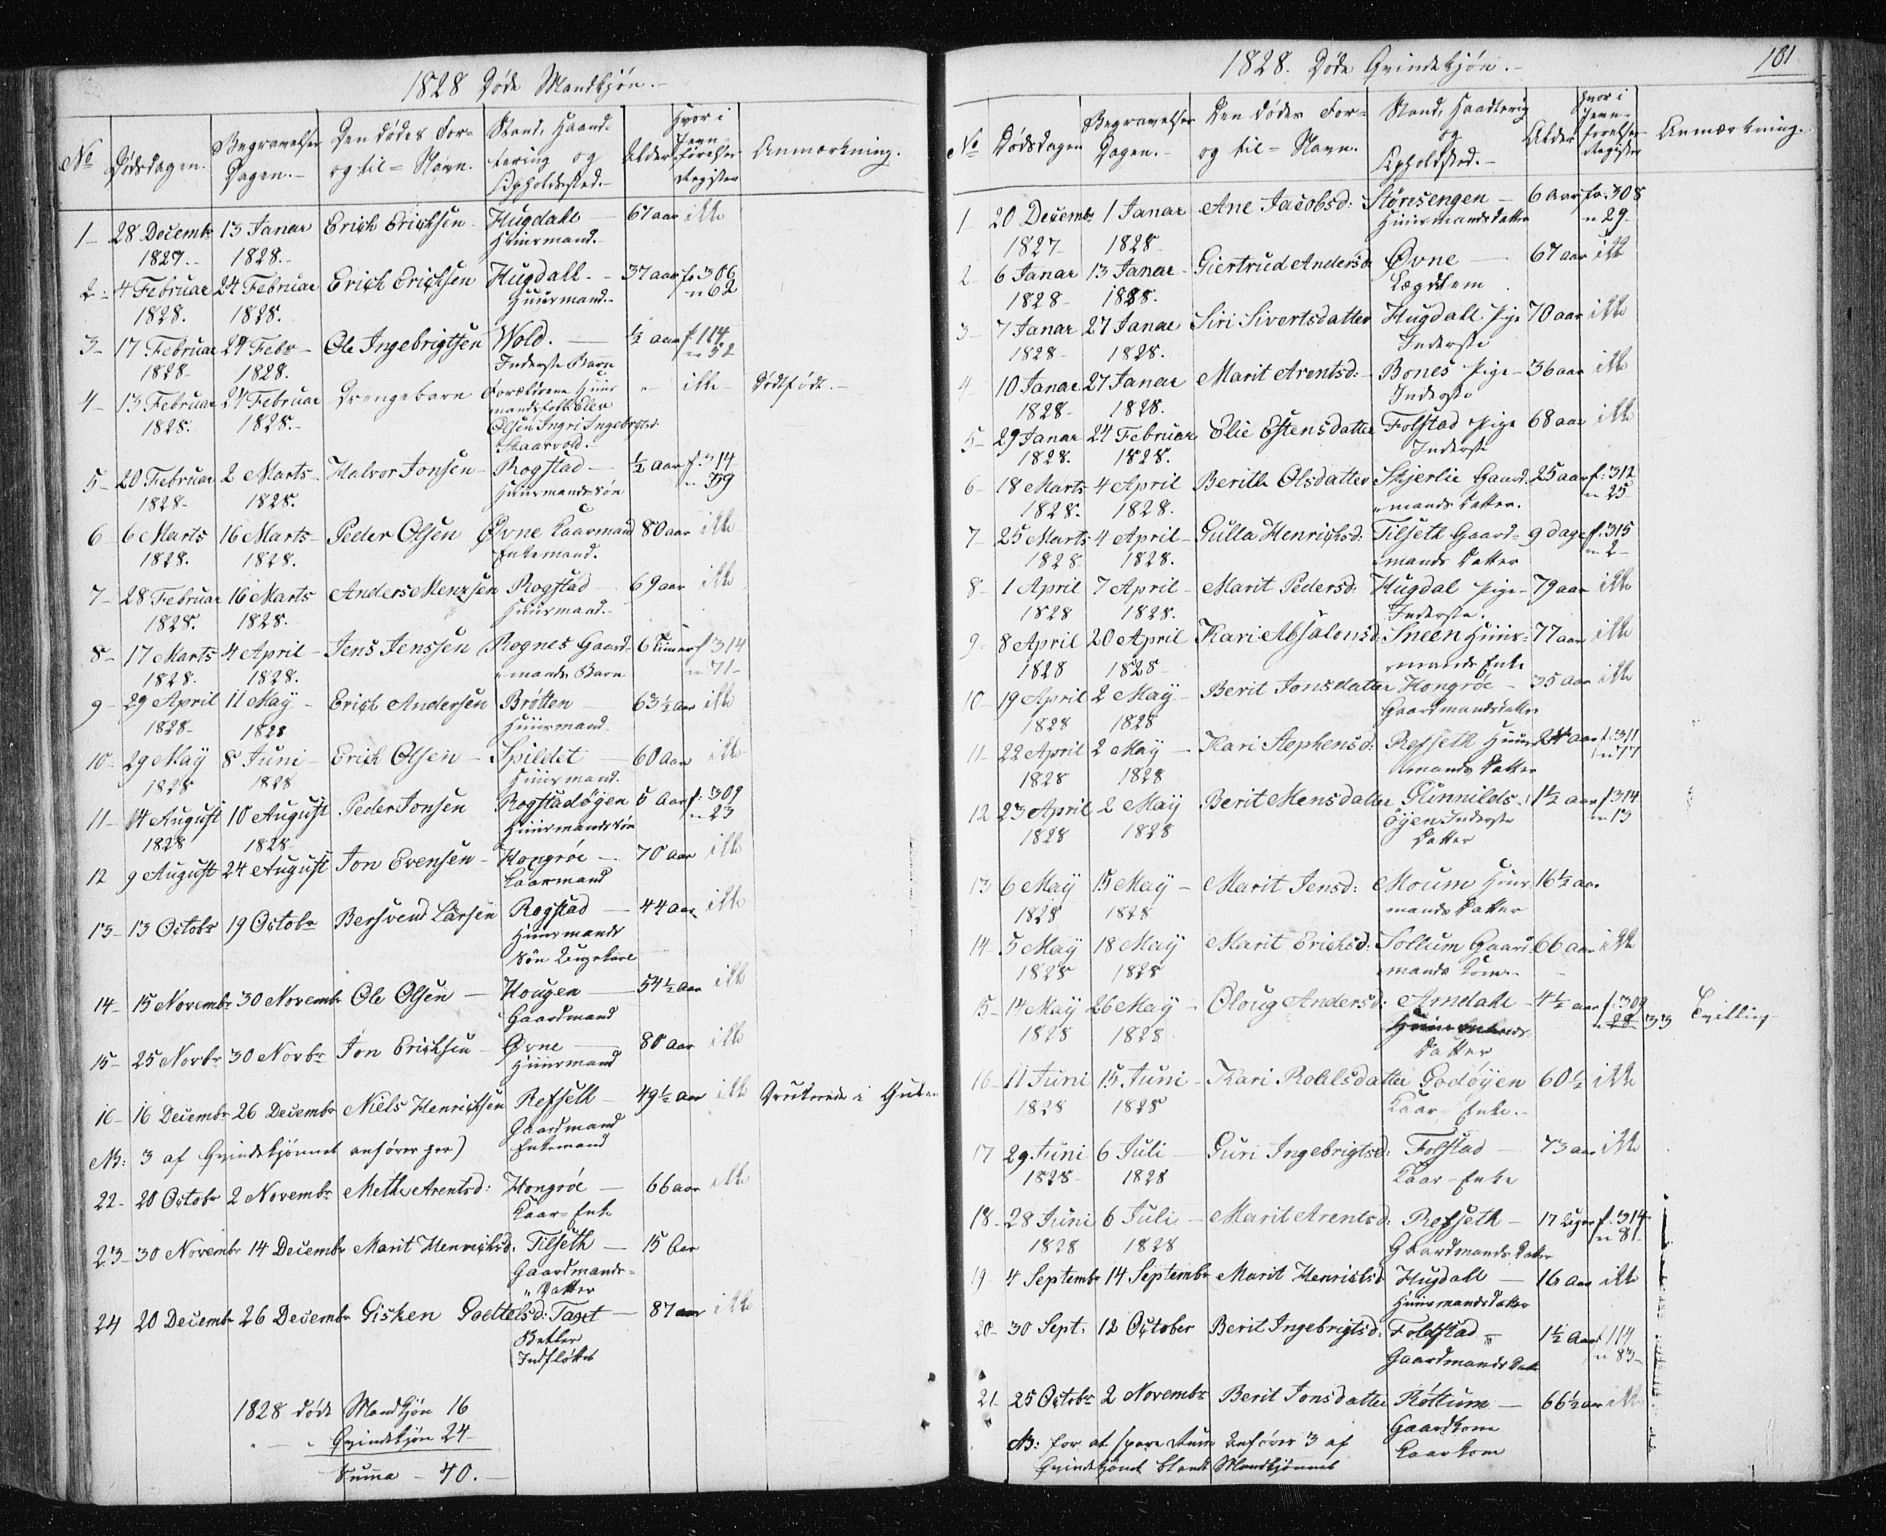 1828 Døde Mandkjøn.-
No
Dødsdagen.
Begravelses Dagen.-
Den dødes For- og til-Navn.
Stand, Haandtering og Opholdssted.-
Alder
Hvor i Jevnførelses Register
Anmærkning.
1- 28 Decembr 13 Januar Erich Erichsen Hugdahl 67 aar ikke
1827.- 1828.- Huusmand.-
2- 4 Februar 24 Februar Erich Erichsen Hugdall.- 37 aar fo: 306
1828. 1828. Huusmand.- n 62
3- 17 Februar 24 Febr- Ole Ingebrigtsen Wold. ½ aar f 114
1828- 1828. Inderste Barn n 52
4- 13 Februar 24 Februar Drengebarn Forældrene Huus - ikke- Dødfødt.-
1828. 1828.- mandsfolk Elev
Olsen Ingri Ingebrigtsd:
Skaarvold.-
5- 20 Februar 2 Marts- Halvor Jonsen- Rogstad- ½ aar f. 314
1828- 1828. Huusmandssøn n 39
6- 6 Marts 16 Marts- Peder Olsen Øvne Kaarmand 80 aar ikke
1828. 1828. Enkemand.
7- 28 Februar 16 Marts Anders Menssen Rogstad 69 aar ikke
1828. 1828. Huusmand.-
8- 17 Marts 4 April- Jens Jenssen Rognes Gaard- 6 Timer f 314
1828. 1828. mands Barn n 71-
9- 29 April 11 May- Erich Andersen Brøtten 63½ aar ikke
1828- 1828 Huusmand.
10- 29 May 8 Juni- Erich Olsen- Spildet 60 aar ikke
1828 1828 Huusmand.
11- 14 August 10 August Peder Jonsen Rogstadøyen 5 aar f: 309
1828 1828 Huusmandssøn n 23
12 9 August 24 August Jon Evensen- Hongrøe- 70 aar ikke
Kaarmand
13- 13 Octobr 19 Octobr Bersvend Larsen Rogstad 44 aar ikke
Huusmands
søn Ungekarl
14- 15 Novembr 30 Novembr Ole Olsen- Hougen 54½ aar ikke
Gaardmand
15- 25 Novbr 30 Novbr Jon Erichsen- Øvne 80 aar ikke
Huusmand
16- 16 Decembr 26 Decembr Niels Henrichsen Refseth- 49½ aar ikke Druknede i
Gaardmand
Enkemand
NB: 3 af Qvindekjønnet anføres her)
22- 20 Octobr 2 Novembr Methe Arentsd: Hongrøe- 66 aar ikke
Kaar-Enke
23- 30 Novembr 14 Decembr Marit Henrichsd: Tilseth- 15 Aar
Gaardmands-
Datter
24 20 Decembr 26 Decembr Gisken 87 aar ikke
Betler
Indfløttet
1828 døde Mandkjøn 16
" - " Qvindekjøn 24-
Summa - 40.-
1828. Døde Qvindekjøn.-
181
No
Dødsdagen
Begravelses Dagen.-
Den dødes For- og til-Navn.
Stand, Haandtering og Opholdssted.-
Alder
Hvor i Jevnførelses Register
Anmærkning.
1- 20 Decembr 1 Januar Ane Jacobsd: Støresengen- 6 Aar fo: 308
1827- 1828 Huusmandsdatter n 29-
2 6 Januar 13 Januar- Giertrud Andersd: Øvne- 67 aar ikke
1828- 1828. Lægdslem
3- 7 Januar 27 Januar Siri Sivertsdatter Hugdall Pige 70 aar ikke
1828- 1828. Inderste
4 10 Januar 27 Januar Marit Arentsd:- Bones Pige- 36 aar ikke
1828- 1828. Inderste
5- 29 Januar 24 Februar Elie Estensdatter Folstad Pige 68 aar ikke
1828. 1828. Inderste
6- 18 Marts 4 April Berith Olsdatter Skjerlie Gaard- 25 aar f: 312
1828. 1828. mands Datter. n 25
7- 25 Marts 4 April- Gulla Henrichsd: Tilseth Gaard- 9 dage f: 315
1828 1828. mands Datter n 2-
8- 1 April 7 April- Marit Pedersd: Hugdal Pige- 79 aar ikke
1828 1828. Inderste.
9- 8 April 20 April Kari Absalonsd. Sneen Huus- 77 aar ikke
1828 1828- mands Enke
10- 19 April 2 May- Berit Jonsdatter Hongrøe- 35 aar ikke
1828 1828 Gaardmandsdatter
11- 22 April 2 May- Kari Stephensd: Refseth Huus- aar f: 311
1828 1828 mands Datter n 17
12 23 April 2 May Berit Mensdatter Gunnilds- 1½ aar f 314
1828 1828 øyen Inderste n 13
Datter
13 6 May 15 May- Marit Jensd: Moum Huus- 16½ aar
1828 1828 mands Datter
14 5 May 18 May Marit Erichsd: Sollum Gaard- 66 aar ikke
1828 1828 mands Kone-
15- 14 May 26 May- Oloug Andersd: Aamdahl- 4½ aar f: 309 Tvilling
1828 1828 n 28 33
Datter
16- 11 Juni 15 Juni- Kari Godøyen 60½ ikke
1828 1828 Kaar-Enke.-
17 29 Juni 6 Juli- Guri Ingebrigtsd: Folstad- 73 aar ikke
1828- 1828 Kaar-Enke
18- 28 Juni 6 Juli- Marit Arentsd: Refseth- 17 Uger f. 314
1828 1828 Gaardmands Datter n 81-
19 4 Septembr 14 Septembr Marit Henrichsd Hugdall- 16 aar ikke
Huusmandsdatter
20- 30 Sept. 12 October Berit Ingebrigtsd: Folstad- 1½ Aar f 114
Gaardmands Datter n 83-
21- 25 Octobr 2 Novembr Berit Jonsdatter Røttum- 66½ aar ikke
Gaardkone
Kaarkone
NB: for at spare Rum anføres 3 af
Qvindekjønet blandt Mandkjønnet